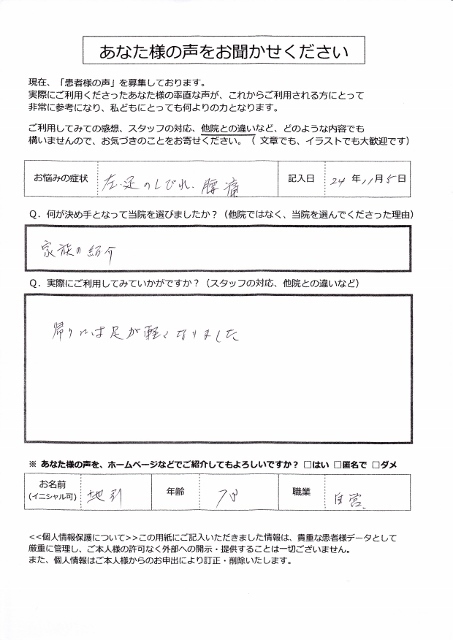 あなた様の声をお聞かせください
現在、「患者様の声」を募集しております。
実際にご利用くださったあなた様の率直な声が、これからご利用される方にとって
非常に参考になり、私どもにとっても何よりの力となります。
ご利用してみての感想、スタッフの対応、他院との違いなど、どのような内容でも
構いませんので、お気づきのことをお寄せください。（ 文章でも、イラストでも大歓迎です）
お悩みの症状 左足のしびれ、腰痛 記入日 24年11月5日
Q．何が決め手となって当院を選びましたか？（他院ではなく、当院を選んでくださった理由）
家族の紹介
Q．実際にご利用してみていかがですか？（スタッフの対応、他院との違いなど）
帰りには足が軽くなりました
※ あなた様の声を、ホームページなどでご紹介してもよろしいですか？ □はい □匿名で □ダメ
お名前
(イニシャル可) 地引 年齢 78 職業 自営
<<個人情報保護について>>この用紙にご記入いただきました情報は、貴重な患者様データとして
厳重に管理し、ご本人様の許可なく外部への開示・提供することは一切ございません。
また、個人情報はご本人様からのお申出により訂正・削除いたします。